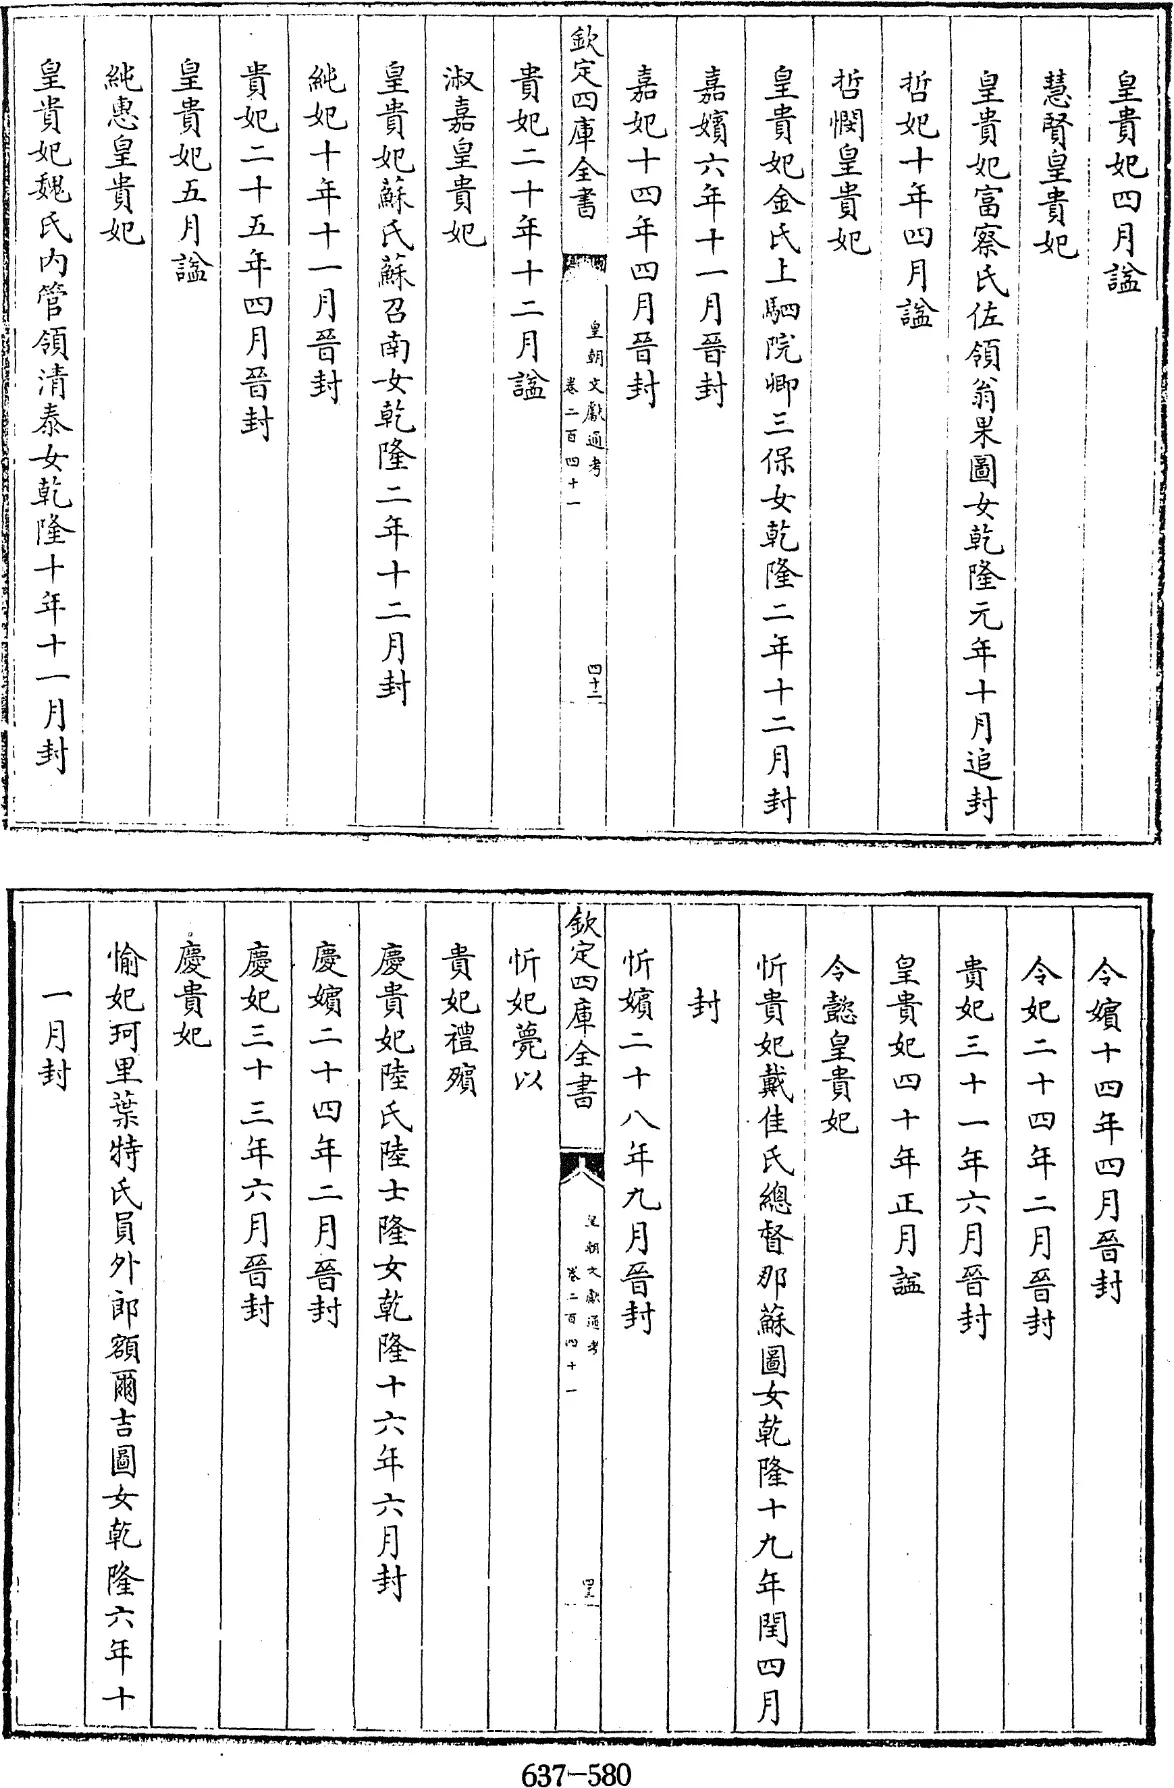 皇貴妃四月諡
慧賢皇貴妃
皇貴妃富察氏佐領翁果圖女乾隆元年十月追封
哲妃十年四月諡
哲憫皇貴妃
皇貴妃金氏上駟院卿三保女乾隆二年十二月封
嘉嬪六年十一月晉封
嘉妃十四年四月晉封
欽定四庫全書
皇朝文獻通考
卷二百四十一
四十二
貴妃二十年十二月諡
淑嘉皇貴妃
皇貴妃蘇氏蘇召南女乾隆二年十二月封
純妃十年十一月晉封
貴妃二十五年四月晉封
皇貴妃五月諡
純惠皇貴妃
皇貴妃魏氏内管領清泰女乾隆十年十一月封
令嬪十四年四月晉封
令妃二十四年二月晉封
貴妃三十一年六月晉封
皇貴妃四十年正月諡
令懿皇貴妃
忻貴妃戴佳氏總督那蘇圖女乾隆十九年閏四月
封
忻嬪二十八年九月晉封
欽定四庫全書
皇朝文獻通考
卷二百四十一
四十三
忻妃薨以
貴妃禮殯
慶貴妃陸氏陸士隆女乾隆十六年六月封
慶嬪二十四年二月晉封
慶妃三十三年六月晉封
慶貴妃
愉妃珂里葉特氏員外郎額爾吉圖女乾隆六年十
一月封
637-580